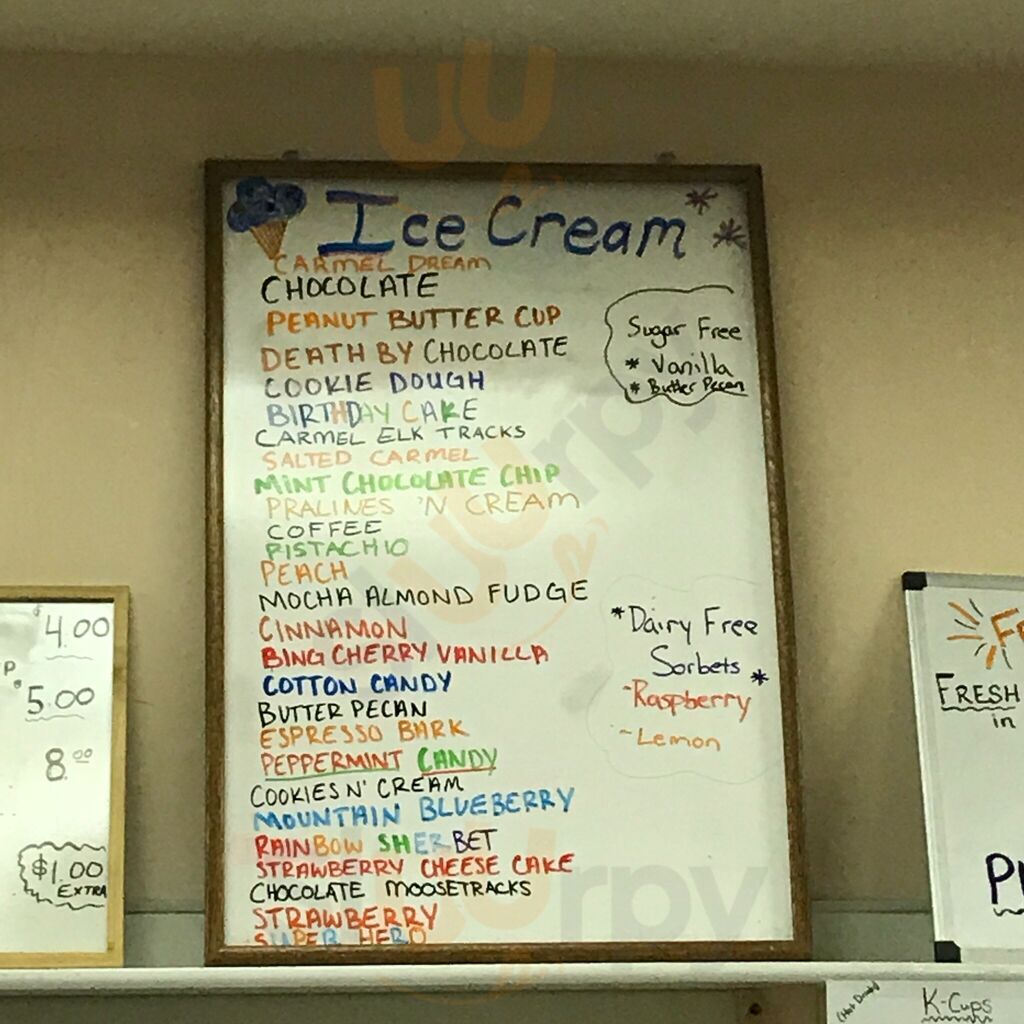 Ice Cream
CARMEL DREAM
CHOCOLATE
PEANUT BUTTER CUP
DEATH BY CHOCOLATE
COOKIE DOUGH
BIRTHDAY CAKE
CARMEL ELK TRACKS
SALTED CARMEL
MINT CHOCOLATE CHIP
PRALINES 'N CREAM
COFFEE
PISTACHIO
PEACH
MOCHA ALMOND FUDGE
CINNAMON
BING CHERRY VANILLA
COTTON CANDY
BUTTER PECAN
ESPRESSO BARK
PEPPERMINT CANDY
COOKIES N' CREAM
MOUNTAIN BLUEBERRY
RAINBOW SHERBET
STRAWBERRY CHEESE CAKE
CHOCOLATE MOOSETRACKS
STRAWBERRY
SUPER HERO
Sugar Free
* Vanilla
* Butter Pecan
*Dairy Free
Sorbets *
~Raspberry
~Lemon
$4.00
P
5.00
8.00
$1.00
EXTRA
FRESH
in
(Hot Drinks)
K-Cups